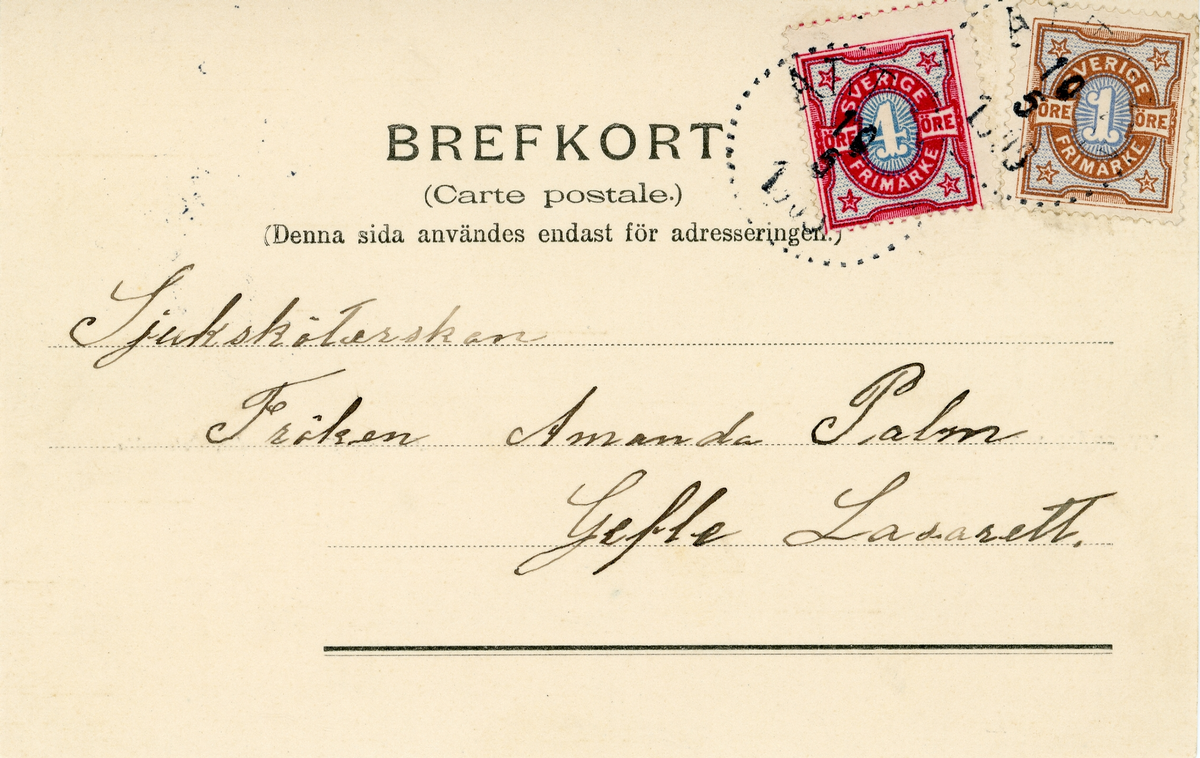 BREFKORT
(Carte postale.)
(Denna sida användes endast för adresseringen.)
SVERIGE
ÖRE 4 ÖRE
FRIMÄRKE
SVERIGE
ÖRE 1 ÖRE
FRIMÄRKE
Sjuksköterskan
Fröken Amanda Palm
Gefle Lasarett.